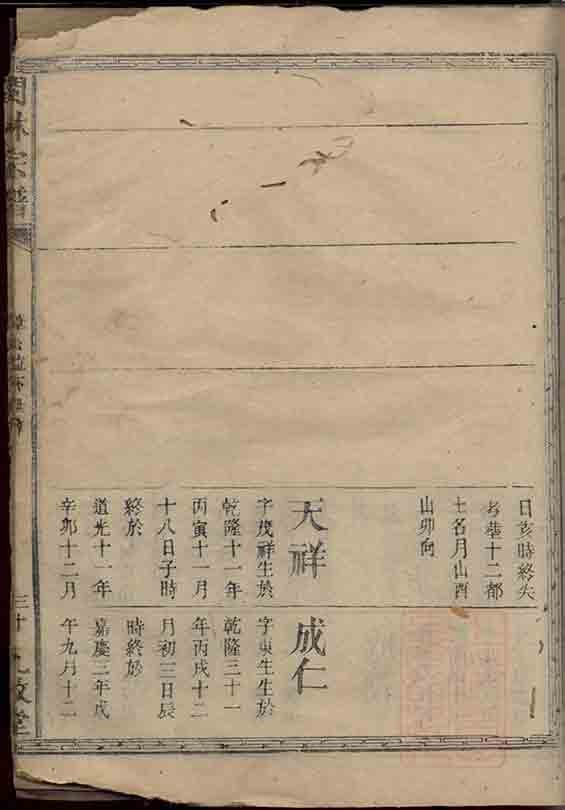 日亥時終失
考葬十二都
土名月山酉
山卯向
天祥
字茂祥生於
乾隆十一年
丙寅十一月
十八日子時
終於
道光十一年
辛卯十二月
成仁
字東生生於
乾隆三十一
年丙戌十二
月初三日辰
時終於
嘉慶三年戊
午九月十二
林宗譜
三十
敦堂